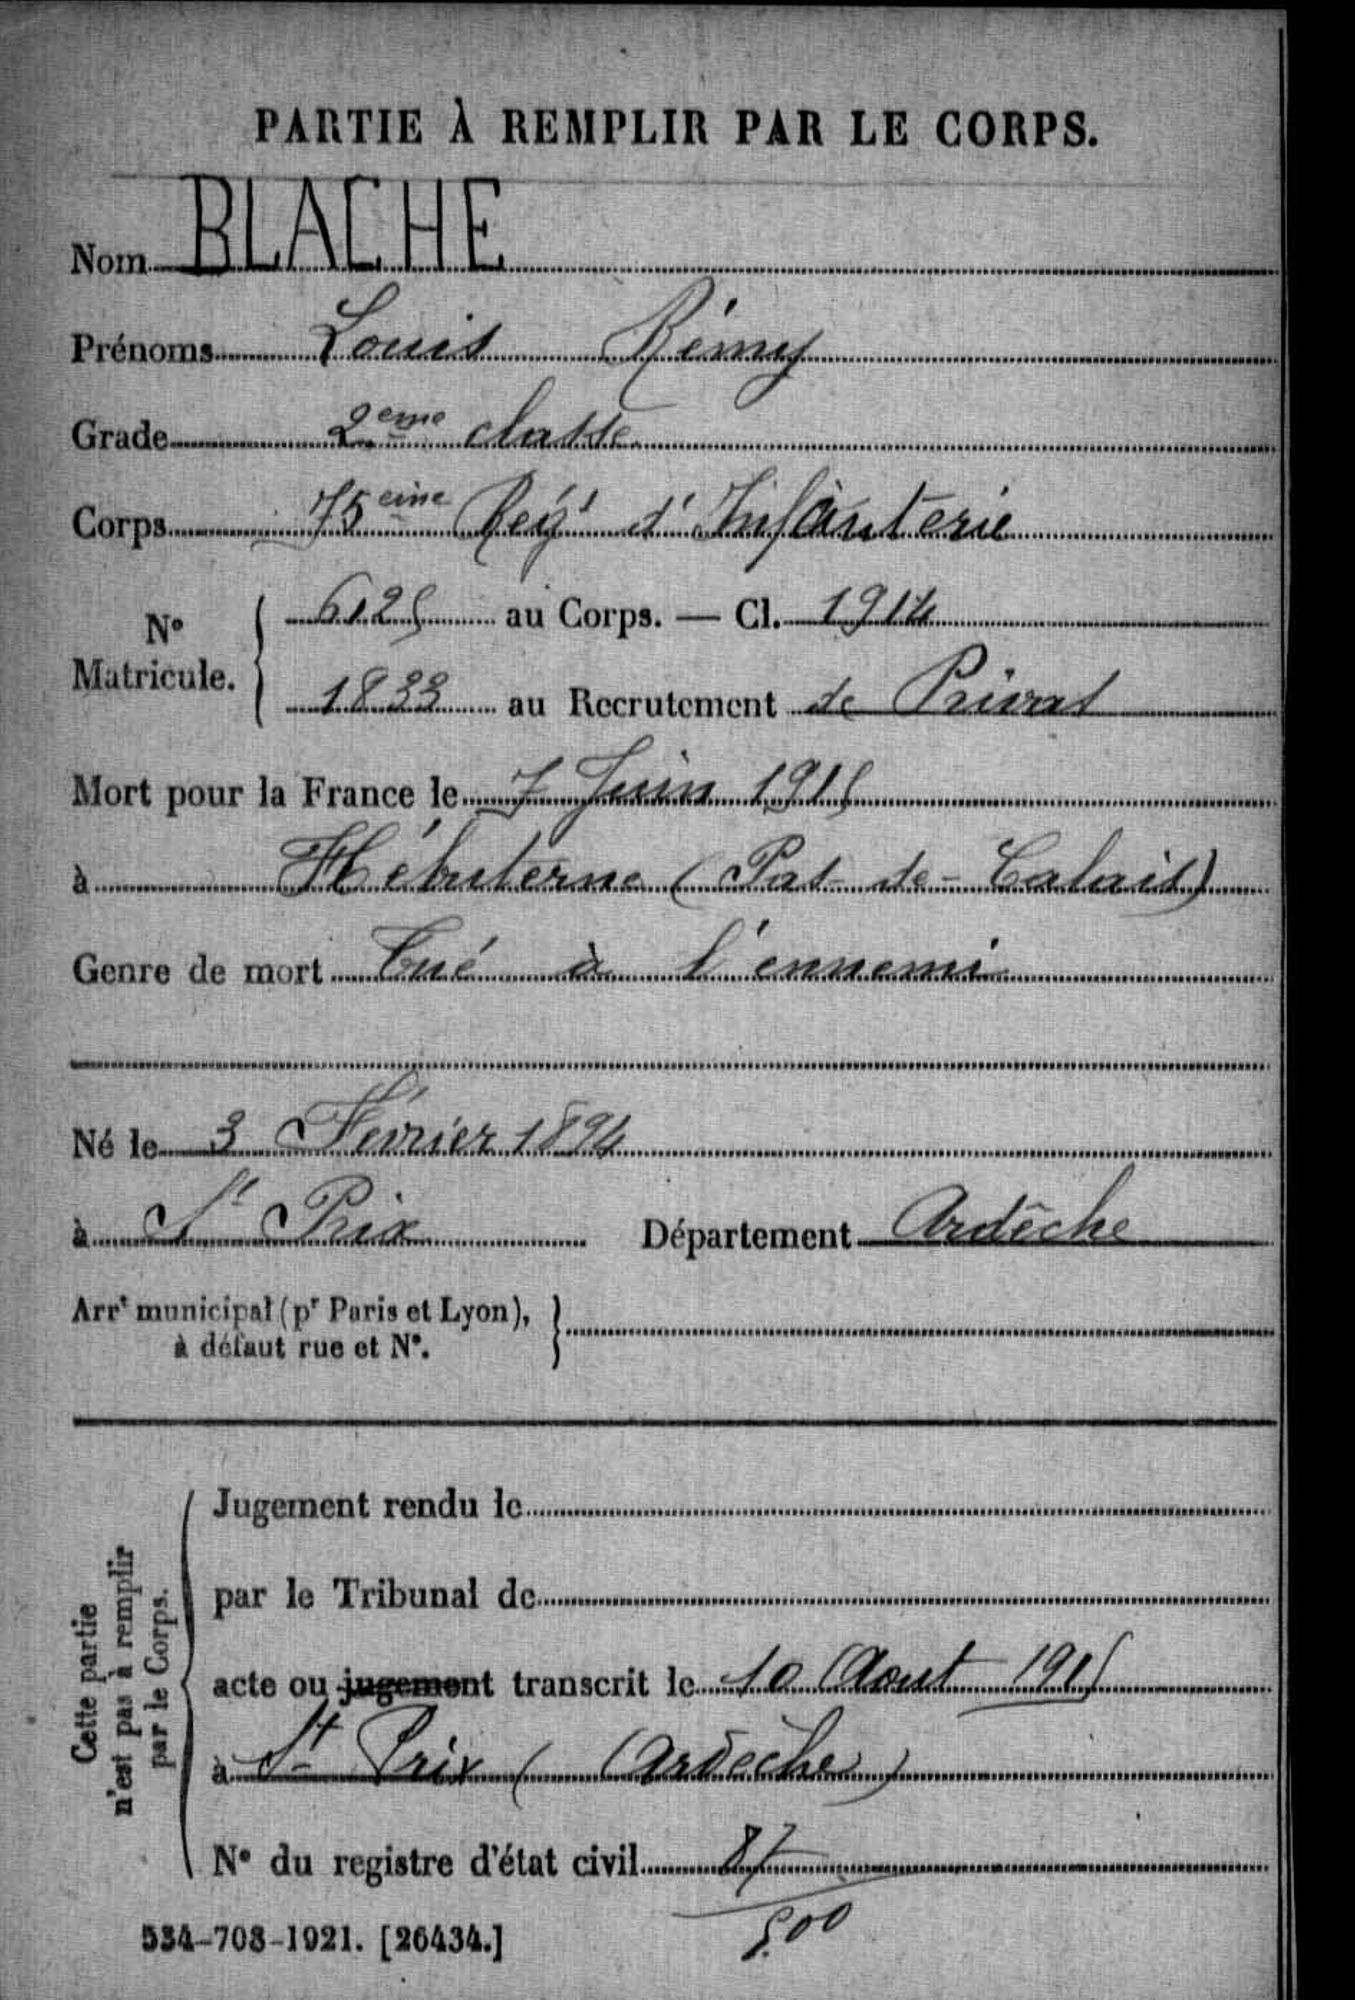 PARTIE À REMPLIR PAR LE CORPS.
Nom BLACHE
Prénoms Louis Rémy
Grade 2eme classe
Corps 75eme Régt d'Infanterie
N° Matricule. 6125 au Corps. — Cl. 1914
1833 au Recrutement de Privas
Mort pour la France le 7 Juin 1915
à Hébuterne (Pas-de-Calais)
Genre de mort Tué à l'ennemi
Né le 3 Février 1894
à St Prix Département Ardèche
Arrt municipal (pr Paris et Lyon),
à défaut rue et N°.
Cette partie
n'est pas à remplir
par le Corps.
Jugement rendu le
par le Tribunal de
acte ou jugement transcrit le 10 Aout 1915
à St Prix (Ardèche)
N° du registre d'état civil 87
500
534-708-1921. [26434.]